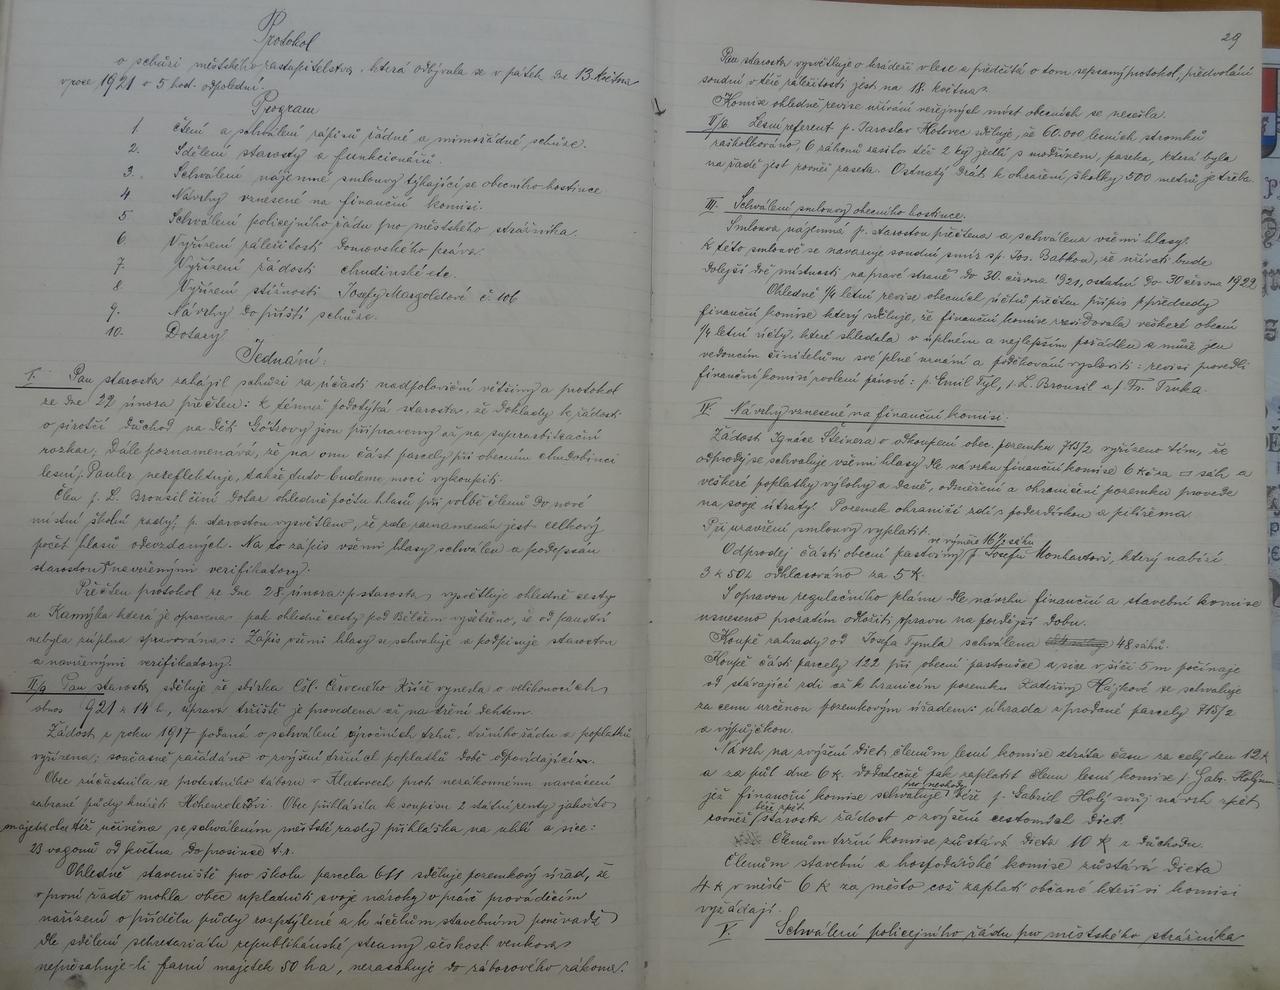 Protokol
o schůzi městského zastupitelstva, která odbývala se v pátek dne 13 května
v roce 1921 o 5 hod. odpolední.
Program
1. čtení a schválení zápisů řádné a mimořádné schůze.
2. Sdělení starosty a funkcionářů.
3. Schválení nájemné smlouvy týkající se obecního hostince
4 Návrhy vznesené na finanční komisi.
5 Schválení policejního řádu pro městského strážníka.
6. Vyřízení záležitostí domovského práva.
7. Vyřízení žádosti chudinské etc.
8 Vyřízení stížnosti Josefy Margoldové č. 106
9. Návrhy do příští schůze.
10. Dotazy
Jednání:
I. Pan starosta zahájil schůzi za účasti nadpoloviční většiny a protokol
ze dne 22 února přečten: k témuž podotýká starosta, že doklady k žádosti
o sirotčí důchod na děti jsou připraveny až na superarbitrační
rozkaz; Dále poznamenává, že na onu část parcely při obecním chudobinci
lesní Pauler nereflektuje, takže tuto budeme moci vykoupiti.
Člen p. L. Brousil činí dotaz ohledně počtu hlasů při volbě členů do nové
místní školní rady; p. starostou vysvětleno, že zde zaznamenán jest celkový
počet hlasů odevzdaných. Na to zápis všemi hlasy schválen a podepsán
starostou navrženými verifikátory.
Přečten protokol ze dne 28 února: p. starosta vysvětluje ohledně cesty
u Kamýka která je opravena jak ohledně cesty pod Bělčem vyšetřeno, že od
nebyla úplně spravována: Zápis všemi hlasy se schvaluje a podpisuje starostou
a navrženými verifikátory.
II/a Pan starosta sděluje že sbírka Čsl. Červeného Kříže vynesla o velikonocích
obnos 921 K 14 h, úprava tržiště je provedena až na tření dehtem.
Žádost z roku 1917 podaná o schválení výročních trhů, tržního řádu a poplatků
vyřízena; současně zažádáno o zvýšení tržních poplatků době odpovídajícím.
Obec zúčastnila se protestního táboru v Klatovech proti nezákonnému navrácení
zabrané půdy knížeti Hohenzollerovi. Obec přihlásila k soupisu 2 státní renty jakožto
majetek obec též učiněna se schválením městské rady přihláška na uhlí a sice:
23 vagonů od května do prosince t.r.
Ohledně staveniště pro školu parcela 611 sděluje pozemkový úřad, že
v první řadě mohla obec uplatniti svoje nároky v práci prováděcím
nařízení o přídělu půdy rozptýlené a k účelům stavebním poněvadž
dle sdělení sekretariátu republikánské strany čsl. venkova,
nepřesahuje-li farní majetek 50 ha, nezasahuje do záborového zákona.
29
Pan starosta vysvětluje o krádeži v lese a předčítá o tom sepsaný protokol, předvolání
soudní v téže záležitosti jest na 18. května.
Komise ohledně revise užívání veřejných míst obecních se nesešla.
II/b. Lesní referent p. Jaroslav Holovec sděluje, že 60.000 lesních stromků
zaškolkováno, 6 záhonů zaseto též 2 kg jedlí s modřínem, paseka, která byla
na řadě jest rovněž zaseta. Ostnatý drát k ohražení školky 500 metrů je třeba.
III. Schválení smlouvy obecního hostince.
Smlouva nájemná p. starostou přečtena a schválena všemi hlasy.
K této smlouvě se navazuje soudní smír s p. Jos. Babkou, že užívati bude
dolejší dvě místnosti na pravé straně do 30. června 1921, ostatní do 30 června 1922
Ohledně 1/4 letní revise obecních účtů přečten přípis p. předsedy
finanční komise který sděluje, že finanční komise revidovala veškeré obecní
1/4 letní účty, které shledala v úplném a nejlepším pořádku a může jen
vedoucím činitelům své plné uznání a poděkování vysloviti: revisi provedli
finanční komisí zvolení pánové: p. Emil Tyl, p. L. Brousil a p. Fr. Truka
IV. Návrhy vznesené na finanční komisi.
Žádost Ignáce Steinera o odkoupení obec. pozemku 715/2 vyřízeno tím, že
odprodej se schvaluje všemi hlasy dle návrhu finanční komise 6 Kč za □ sáh a
veškeré poplatky výlohy a daně, odměření a ohraničení pozemku provede
na svoje útraty. Pozemek ohraničí zdí s podezdívkou a pilířema.
Při uzavření smlouvy vyplatit.
ve výměře 16 1/2 sáhů
Odprodej části obecní pastviny p. Josefu Monhartovi, který nabízí
3 K 50 h odhlasováno za 5 K.
S opravou regulačního plánu dle návrhu finanční a stavební komise
usneseno prozatím odložiti opravu na pozdější dobu.
Koupě zahrady od Josefa Tymla schválena 48 sáhů.
Koupě části parcely 122 při obecní pastoušce a sice v šíři 5 m počínaje
od stávající zdi až k hranicím pozemku Kateřiny Hájkové se schvaluje
za cenu určenou pozemkovým úřadem: úhrada z prodané parcely 715/2
a výpůjčkou.
Návrh na zvýšení diet členům lesní komise ztráta času za celý den 12 K
a za půl dne 6 K. dodatečně pak zaplatit členu lesní komise p. Gab. Holému
jež finanční komise schvaluje též p. Gabriel Holý svůj návrh zpět
též zpět
rovněž starosta žádost o zvýšení cestovních diet.
Členům tržní komise zůstává dieta 10 K z důchodu.
Členům stavební a hospodářské komise zůstává dieta
4 K v místě 6 K za město což zaplatí občané kteří si komisi
vyžádají.
V. Schválení policejního řádu pro městského strážníka